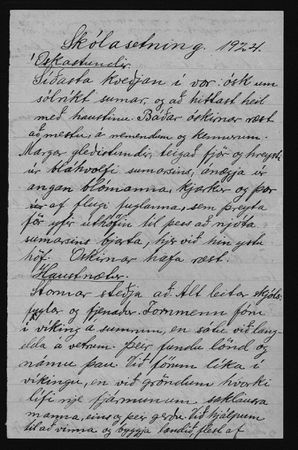 Skólasetning. 1924.
Óskastundir.
Síðasta kveðjan í vor: ósk um
sólríkt sumar, og að hittast heil
með haustinu. Báðar óskirnar ræst
að mestu, á nemendum og kennurum.
Margar gleðistundir, teigað fjör og hreysti
úr bláhvolfi sumarsins, ánægja úr
angan blómanna, kjarkur og þor
úr af flugi fuglanna, sem þreyta
för yfir úthöfin til þess að njóta
sumarsins bjarta, hjer við hin ystu
höf. Óskirnar hafa ræst.
Haustnætur.
Stormar steðja að. Alt leitar skjóls
fuglar og fjenaður. Fornmenn fóru
í víking á sumrum, en sátu við lang-
elda á vetrum. Þeir fundu lönd og
námu þau. Við förum líka í
víkingu, en við gröndum hvorki
lífi nje fjármunum saklausra
manna, eins og þeir gerðu. Við hjálpum
til að vinna og byggja landið, flest af